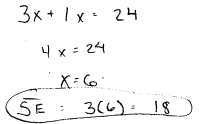 3x + 1x = 24
4x = 24
x = 6
SE = 3(6) = 18